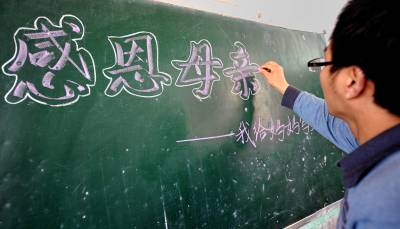 感恩母亲
——我给妈妈